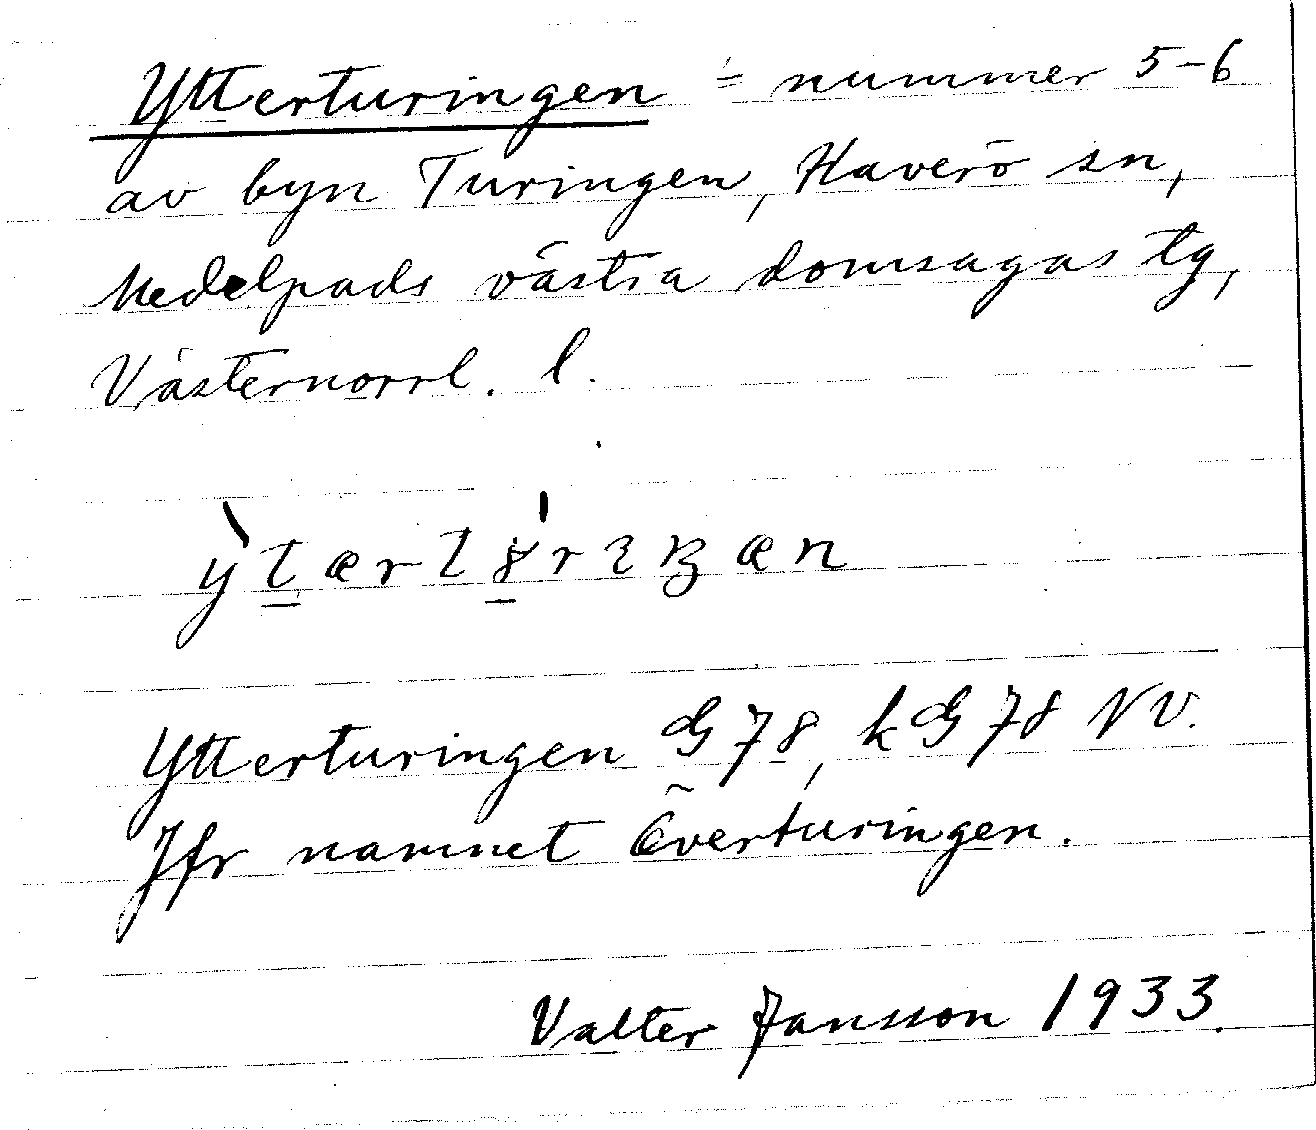 Ytterturingen = nummer 5-6
av byn Turingen, Haverö sn,
Medelpads västra domsagas tg,
Västernorrl. l.
Ytterturingen G78, kG78 NV.
Jfr namnet Överturingen.
Valter Jansson 1933.